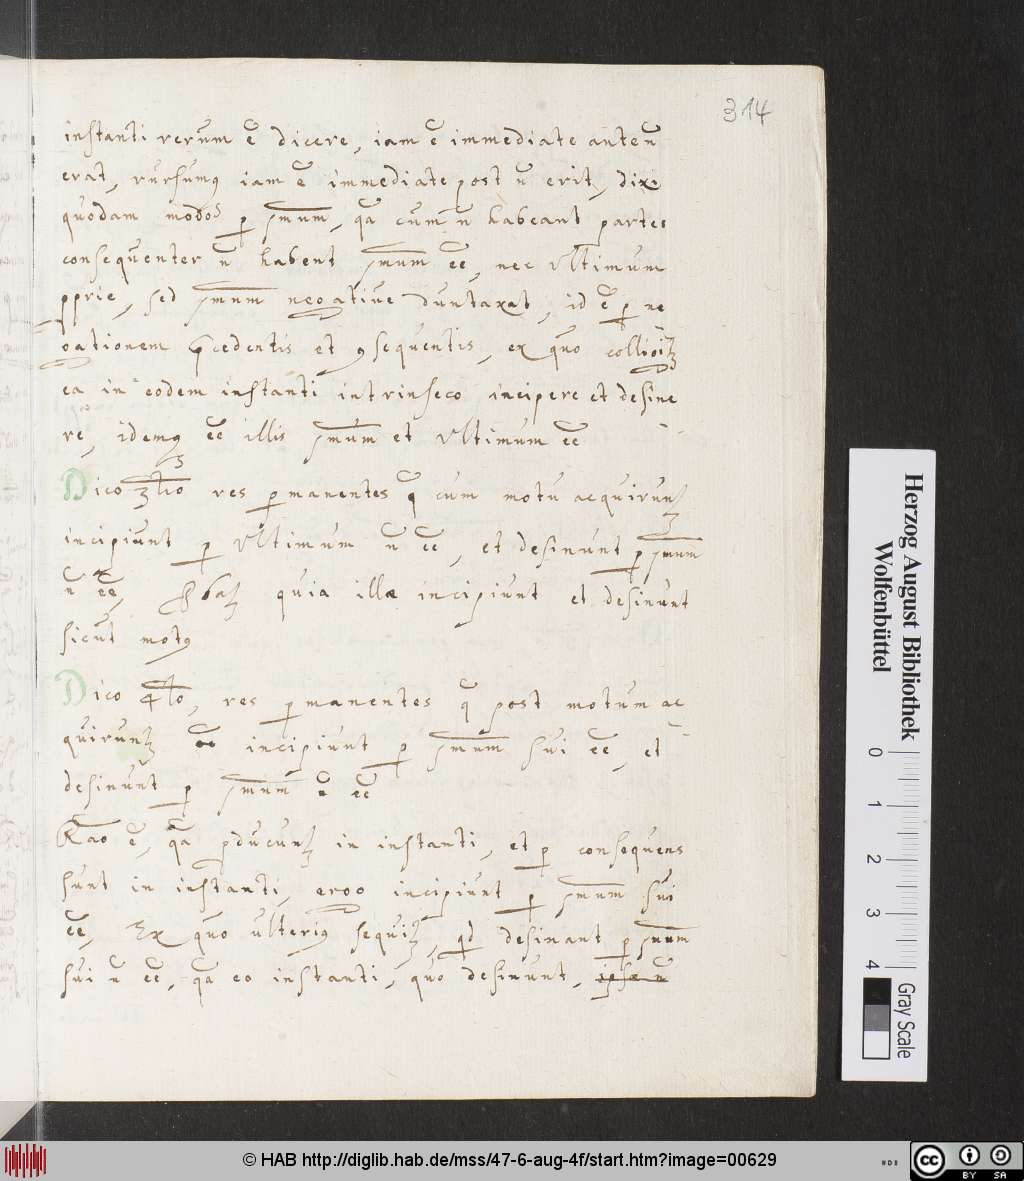 314
instanti verum ē dicere, iam ē immediate ante n̄
erat, rursumq iam ē immediate post n̄ erit, dixi
quodam modo p pmum, qa cum n̄ habeant partes
consequenter n̄ habent pmum ēē, nec Vltimum
pprie, sed pmum negative duntaxat, id ē p ne
gationem pcedentis et 9sequentis, ex quo colligitꝫ
ea in eodem instanti intrinseco incipere et desine
re, idemq ēē illis pmum et Vltimum ēē
Dico 3tio res pmanentes q̄ cum motu acquirunꝫ
incipiunt p Vltimum n̄ ēē, et desinunt p pmum
n̄ ēē, Pbaꝫ quia illæ incipiunt et desinunt
sicut mot9
Dico 4to, res pmanentes q̄ post motum ac
quirunꝫ incipiunt p pmum sui ēē, et
desinunt p pmum n̄ ēē
Rāo ē, qa pducunꝫ in instanti, et p consequens
sunt in instanti, ergo incipiunt p pmum sui
ēē, Ex quo ulteri9 sequiꝫ, qd desinant p pmum
sui n̄ ēē, qa eo instanti, quo desinunt,
Herzog August Bibliothek
Wolfenbüttel
0 1 2 3 4
Gray Scale
© HAB http://diglib.hab.de/mss/47-6-aug-4f/start.htm?image=00629
cc BY SA